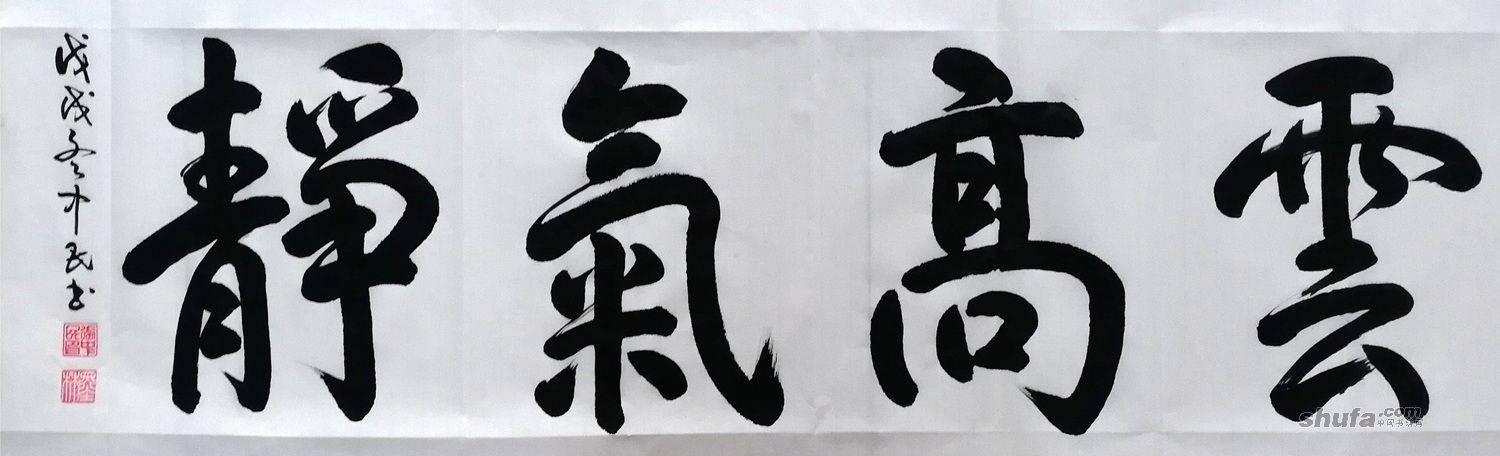 雲髙氣靜
戊戌冬中民书
shufa.com
中国书法网